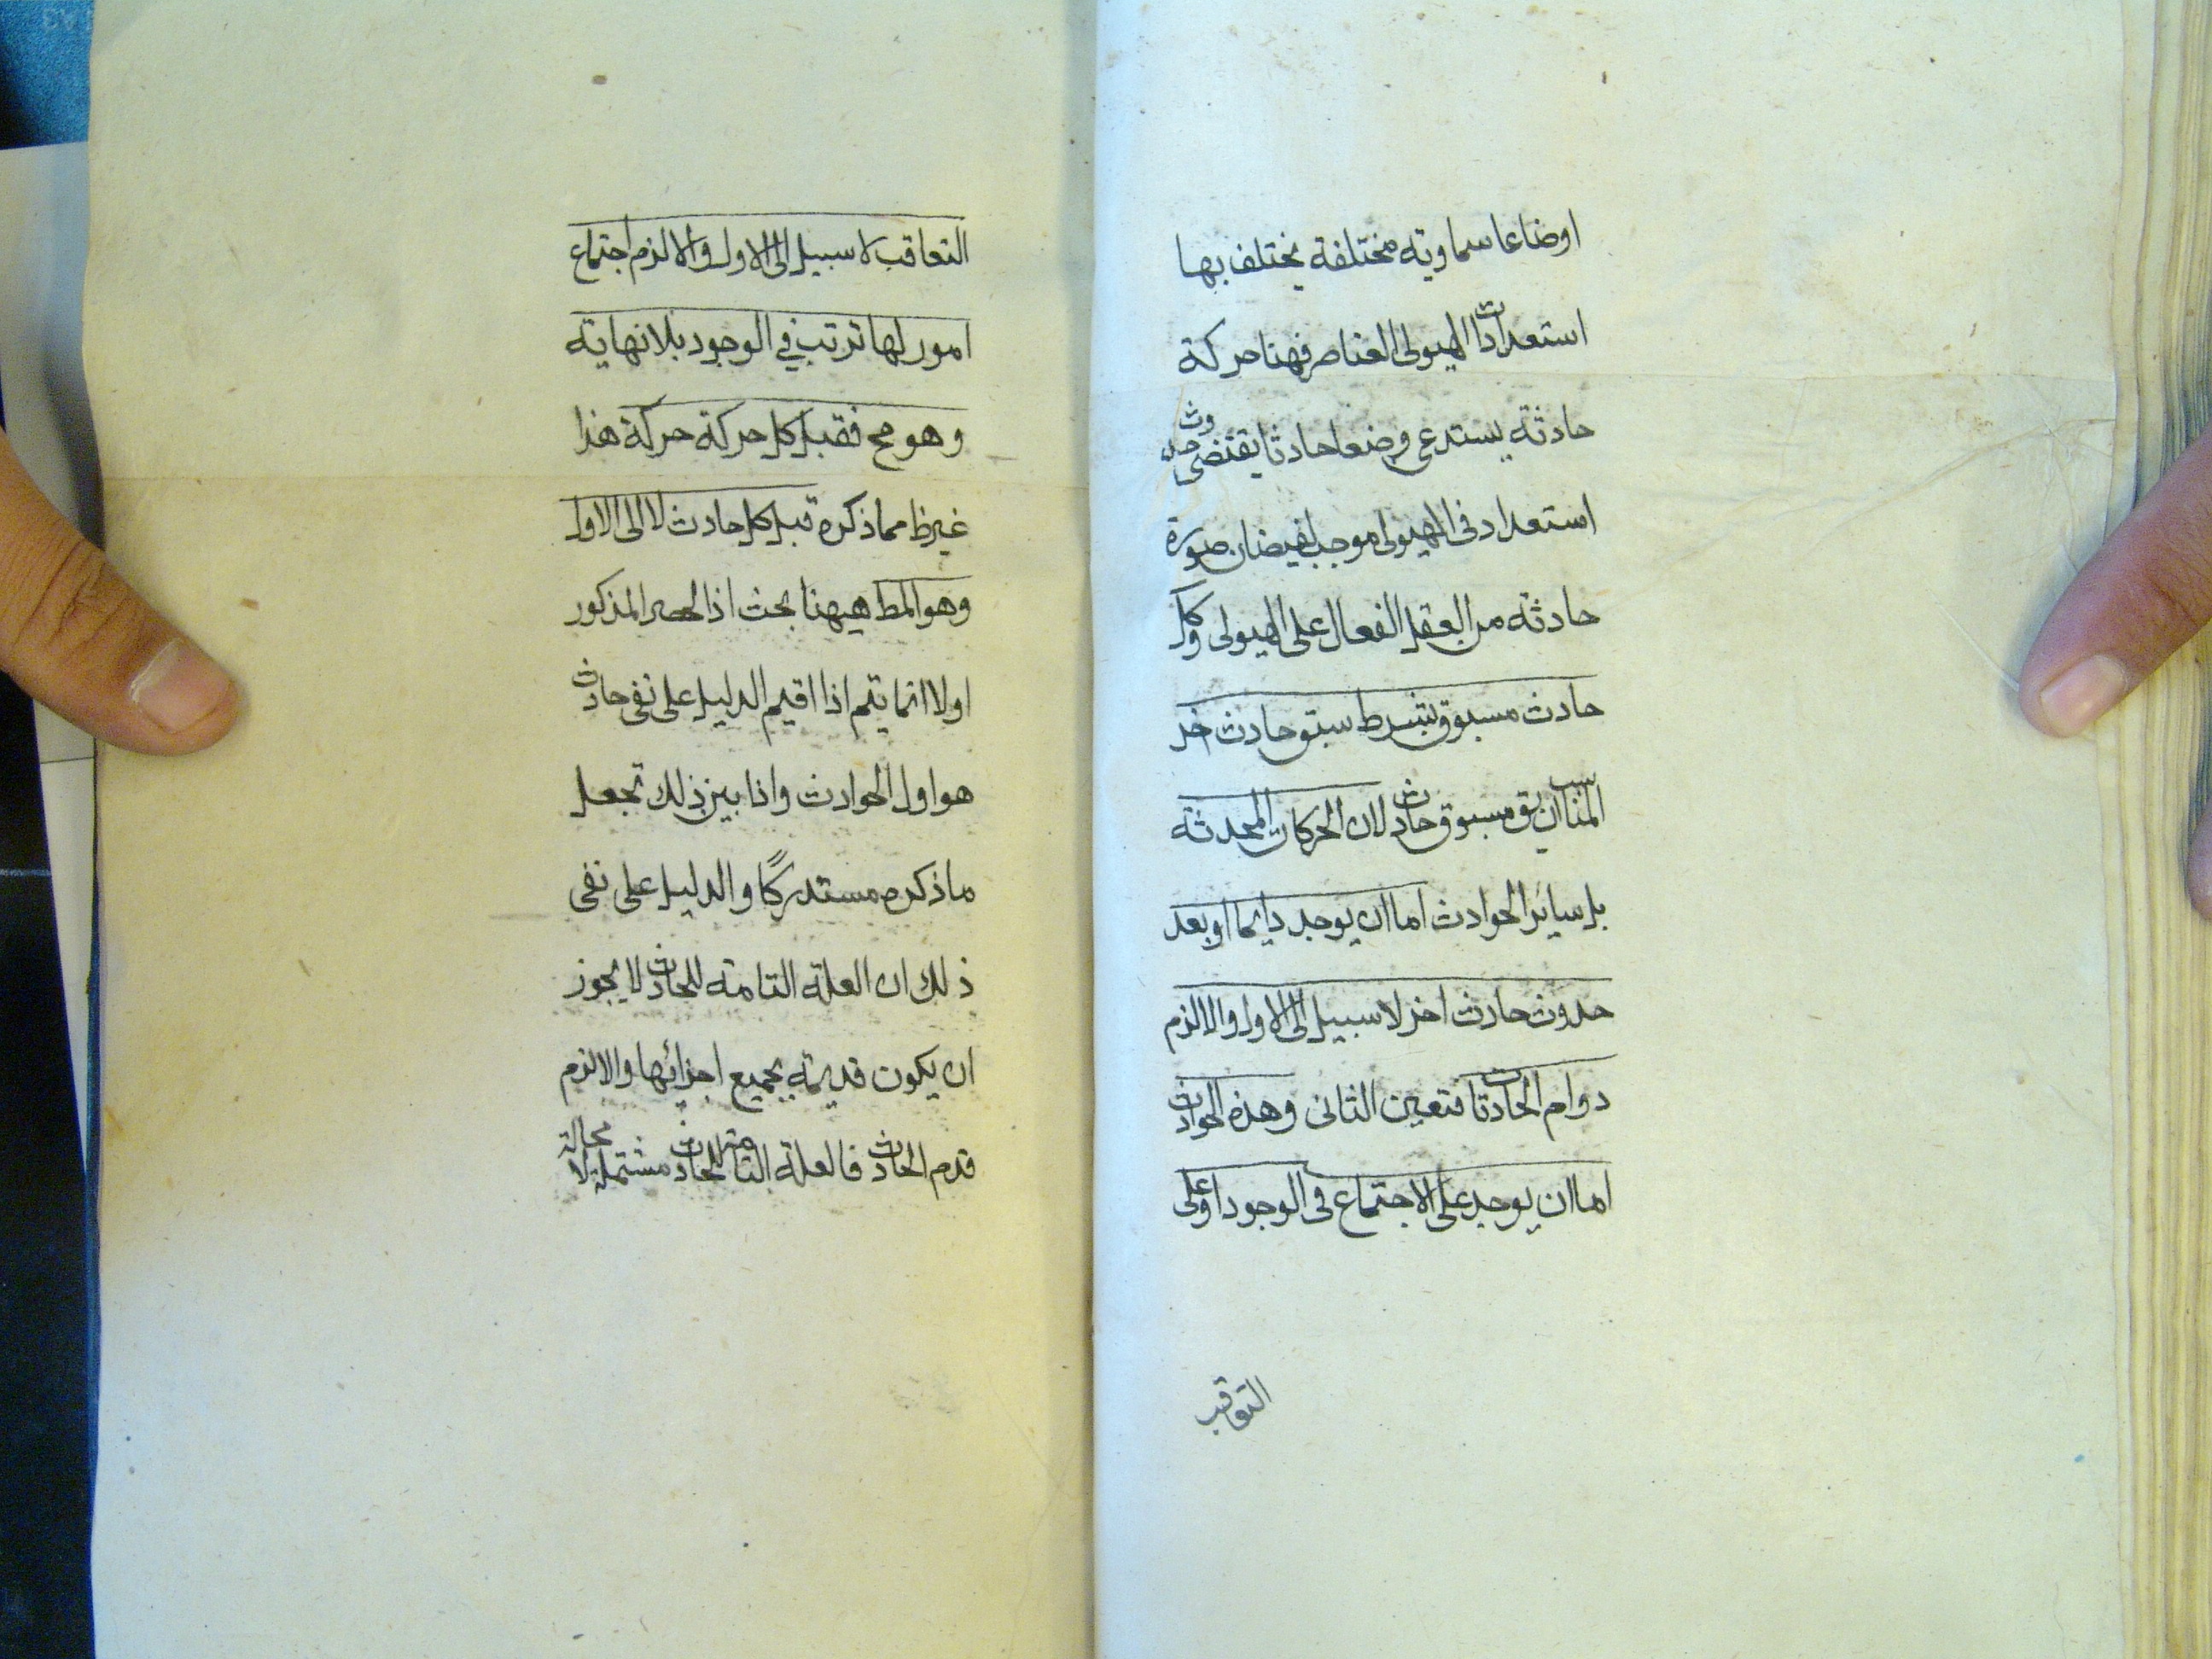 اوضاعا سماوية مختلفة يختلف بها
استعدادات الهيولى العناصر فهنا حركة
حادثة يستدعى وضعا حادثا يقتضى حدوث
استعداد فى الهيولى موجب لفيضان صورة
حادثة من العقل الفعال على الهيولى وكل
حادث مسبوق بشرط سبق حادث اخر
المناسب ان يق مسبوق حادث لان الحركات المحدثة
بل سائر الحوادث اما ان يوجد دايما او بعد
حدوث حادث اخر لا سبيل الى الاول والا لزم
دوام الحادثات فتعين الثانى وهذه الحوادث
اما ان يوجد على الاجتماع فى الوجود او على
التعاقب
التعاقب لا سبيل الى الاول والا لزم اجتماع
امور لها ترتب في الوجود بلا نهاية
وهو مح فقبل كل حركة حركة هذا
غير ظ مما ذكره قبل كل حادث لا الى الاول
وهو المط هيهنا بحث اذ الحصر المذكور
اولا انما يتم اذا اقيم الدليل على نفى حادث
هو اول الحوادث واذا بين ذلك تجعل
ما ذكره مستدركًا والدليل على نفى
ذلك ان العلة التامة للحادث لا يجوز
ان يكون قديمة بجميع اجزائها والا لزم
قدم الحادث فالعلة التامة للحادث مشتملة لا محالة